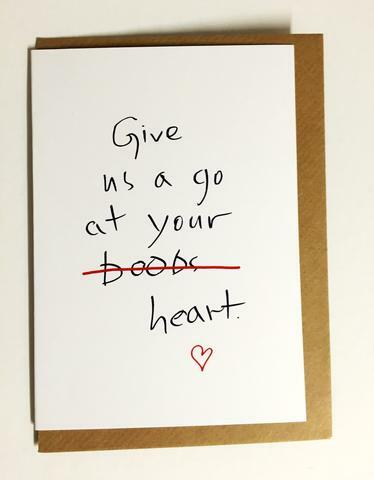 Give
us a go
at your
boobs
heart.